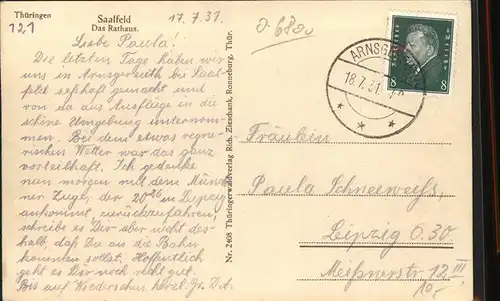 Thüringen
121
Saalfeld
Das Rathaus.
17.7.31.
Liebe Paula!
Die letzten Tage haben wir
uns in Arnsgereuth bei Saal-
feld seßhaft gemacht und
von da aus Ausflüge in die
schöne Umgebung unternom-
men. Bei dem etwas regne-
rischen Wetter war das ganz
vorteilhaft. Ich gedenke
nun morgen mit dem Münch-
ner Zuge, der 20 in Leipzig
ankommt, zurückzufahren,
schreibe es Dir aber nicht des-
halb, daß Du an die Bahn
kommen sollst. Hoffentlich
geht es Dir recht gut.
Bis auf Wiedersehen
Nr. 2408 Thüringerwaldverlag Rich. Zieschank, Ronneburg, Thür.
ARNSGE
18.7.31
8 8
Fräulein
Paula Schneeweiß,
Leipzig O.30
Meißnerstr 12 III
10,-